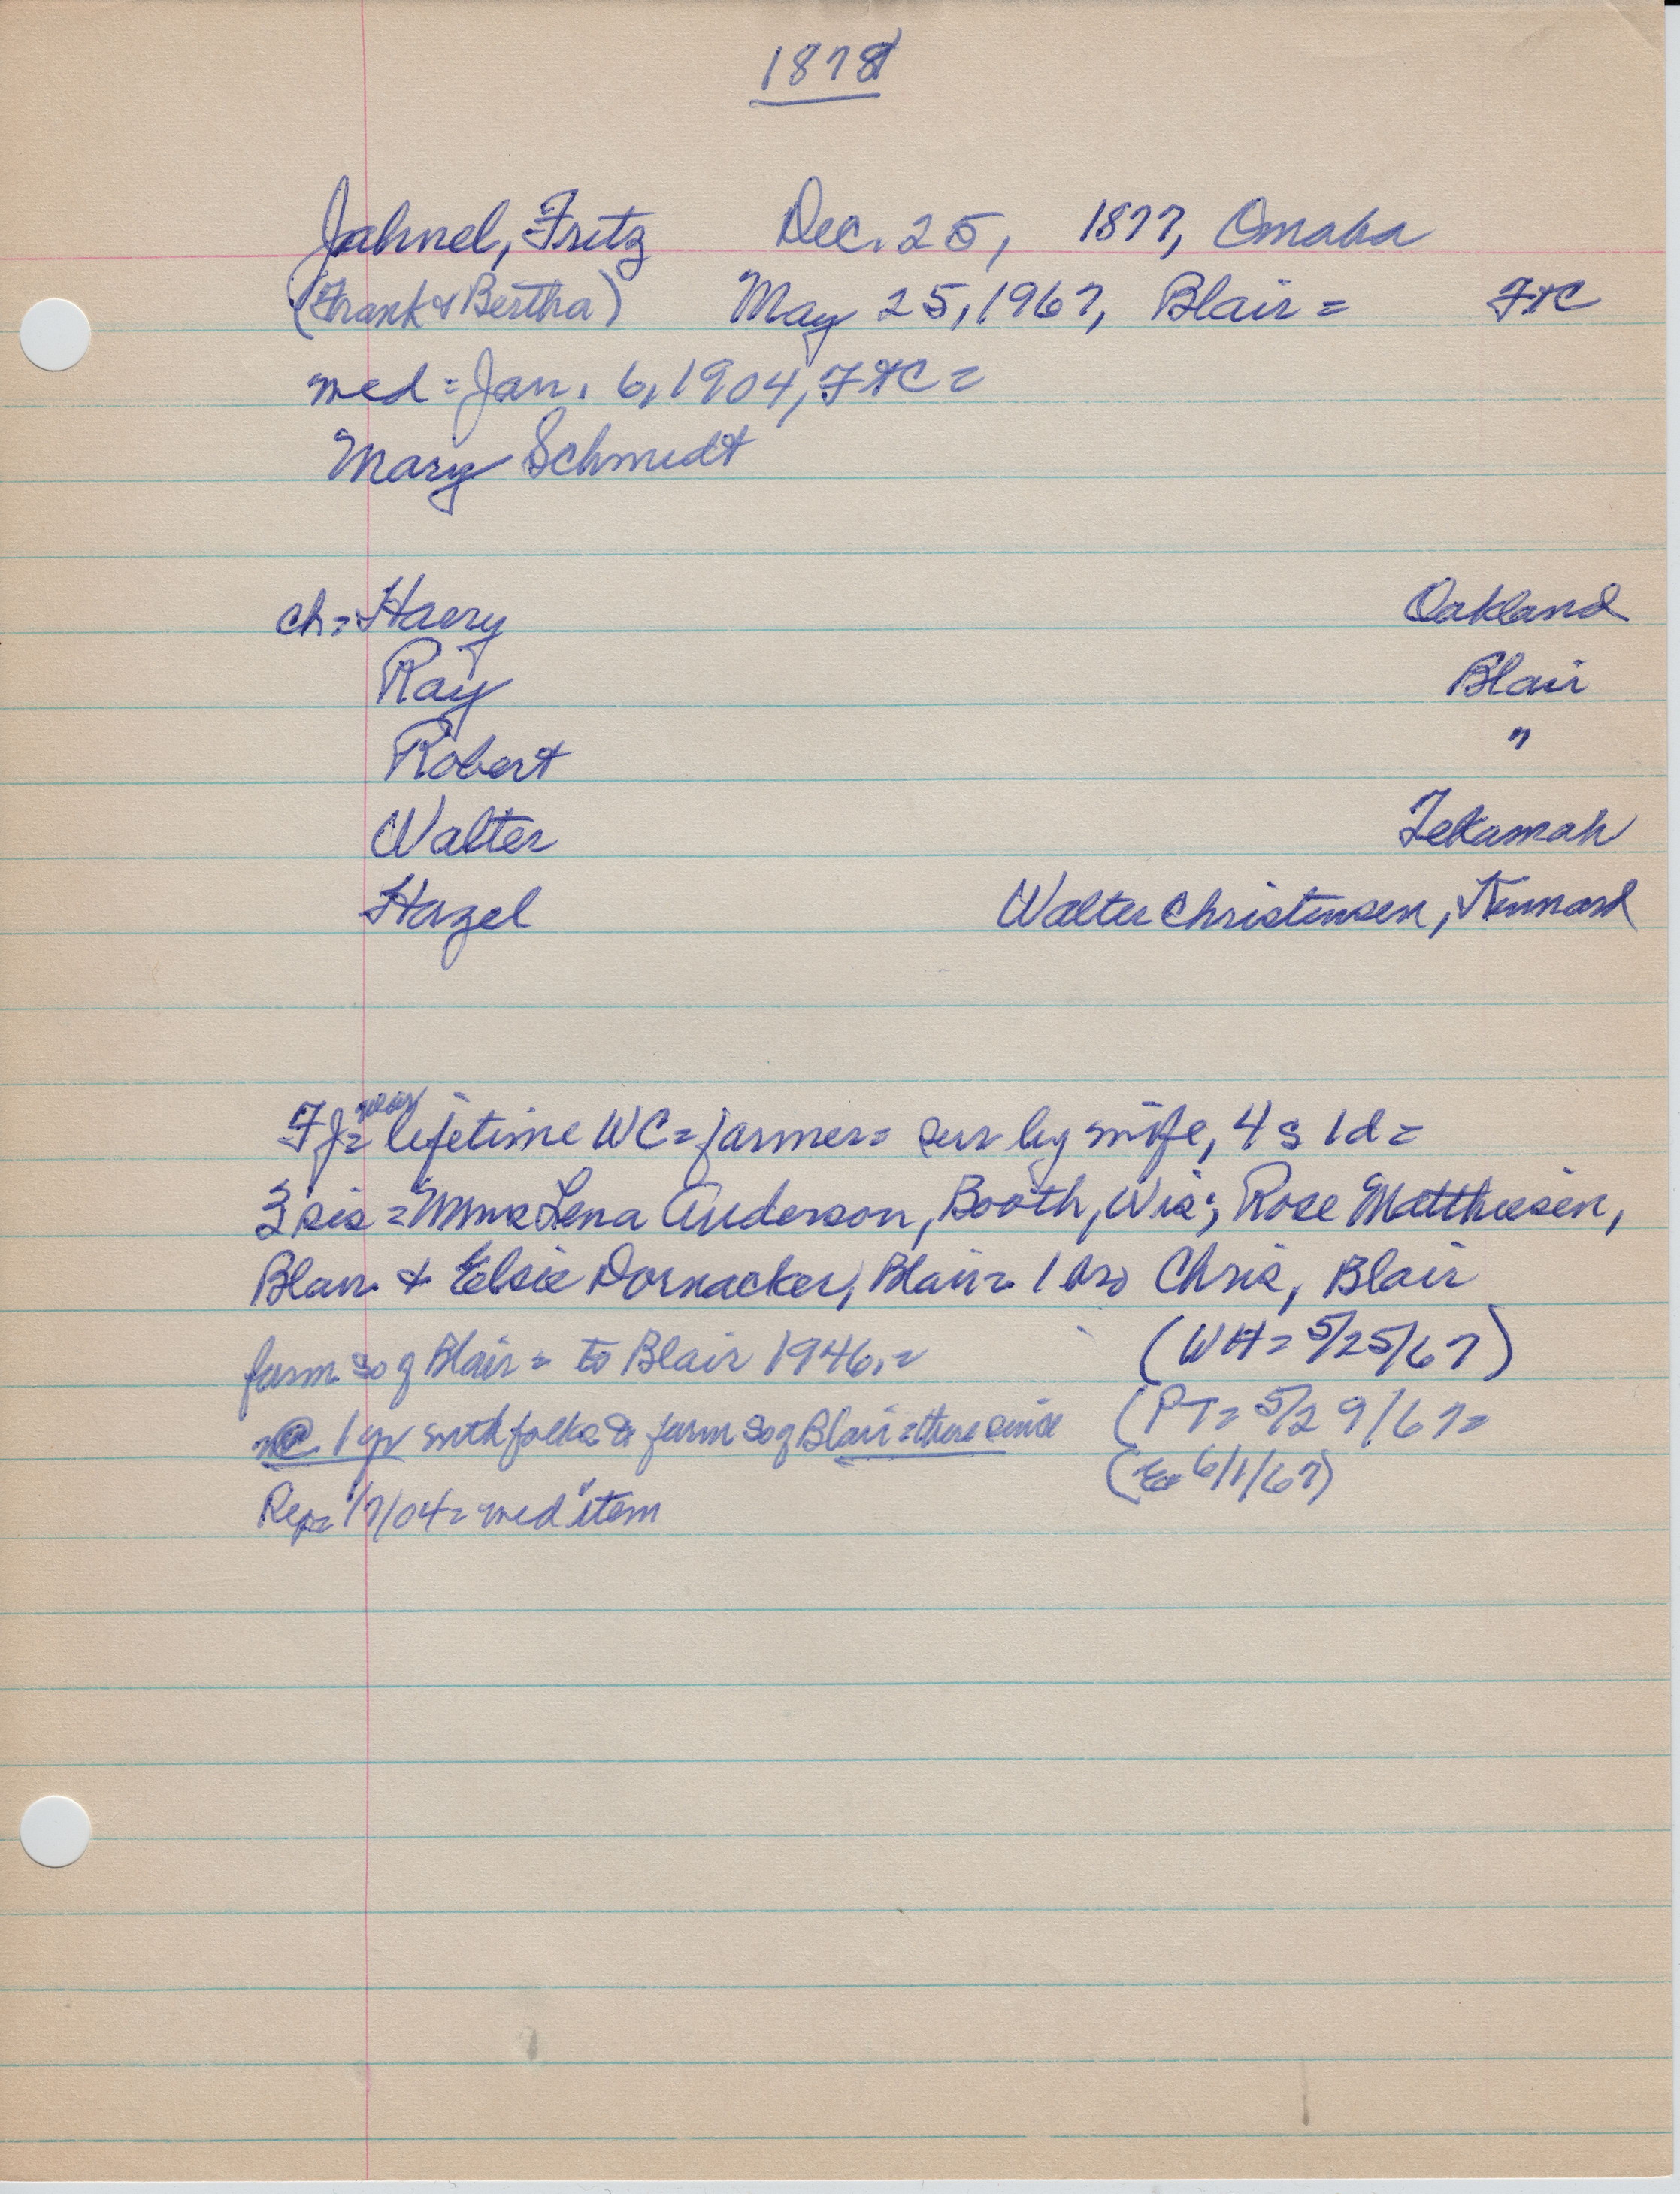 1878
Jahnel, Fritz Dec. 25, 1877, Omaha
(Frank & Bertha) May 25, 1967, Blair = FtC
med = Jan. 6, 1904, FtC =
Mary Schmidt
ch = Harry Oakland
Ray Blair
Robert "
Walter Tekamah
Hazel Walter Christensen, Kennard
FJ = lifetime WC = farmer = sur by wife, 4 s 1 d =
3 sis = Mmes Lena Anderson, Booth, Wis; Rose Matthiesen,
Blair & Elsie Dornacker, Blair = 1 bro Chris, Blair
farm so of Blair = to Blair 1946. = (WH = 5/25/67)
@ 1 yr with folks to farm so of Blair = there since (PT = 5/29/67 =
(E = 6/1/67)
Rep = 1/7/04 = wed item